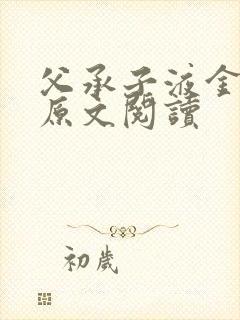 父承子液金
原文閱讀
初歲